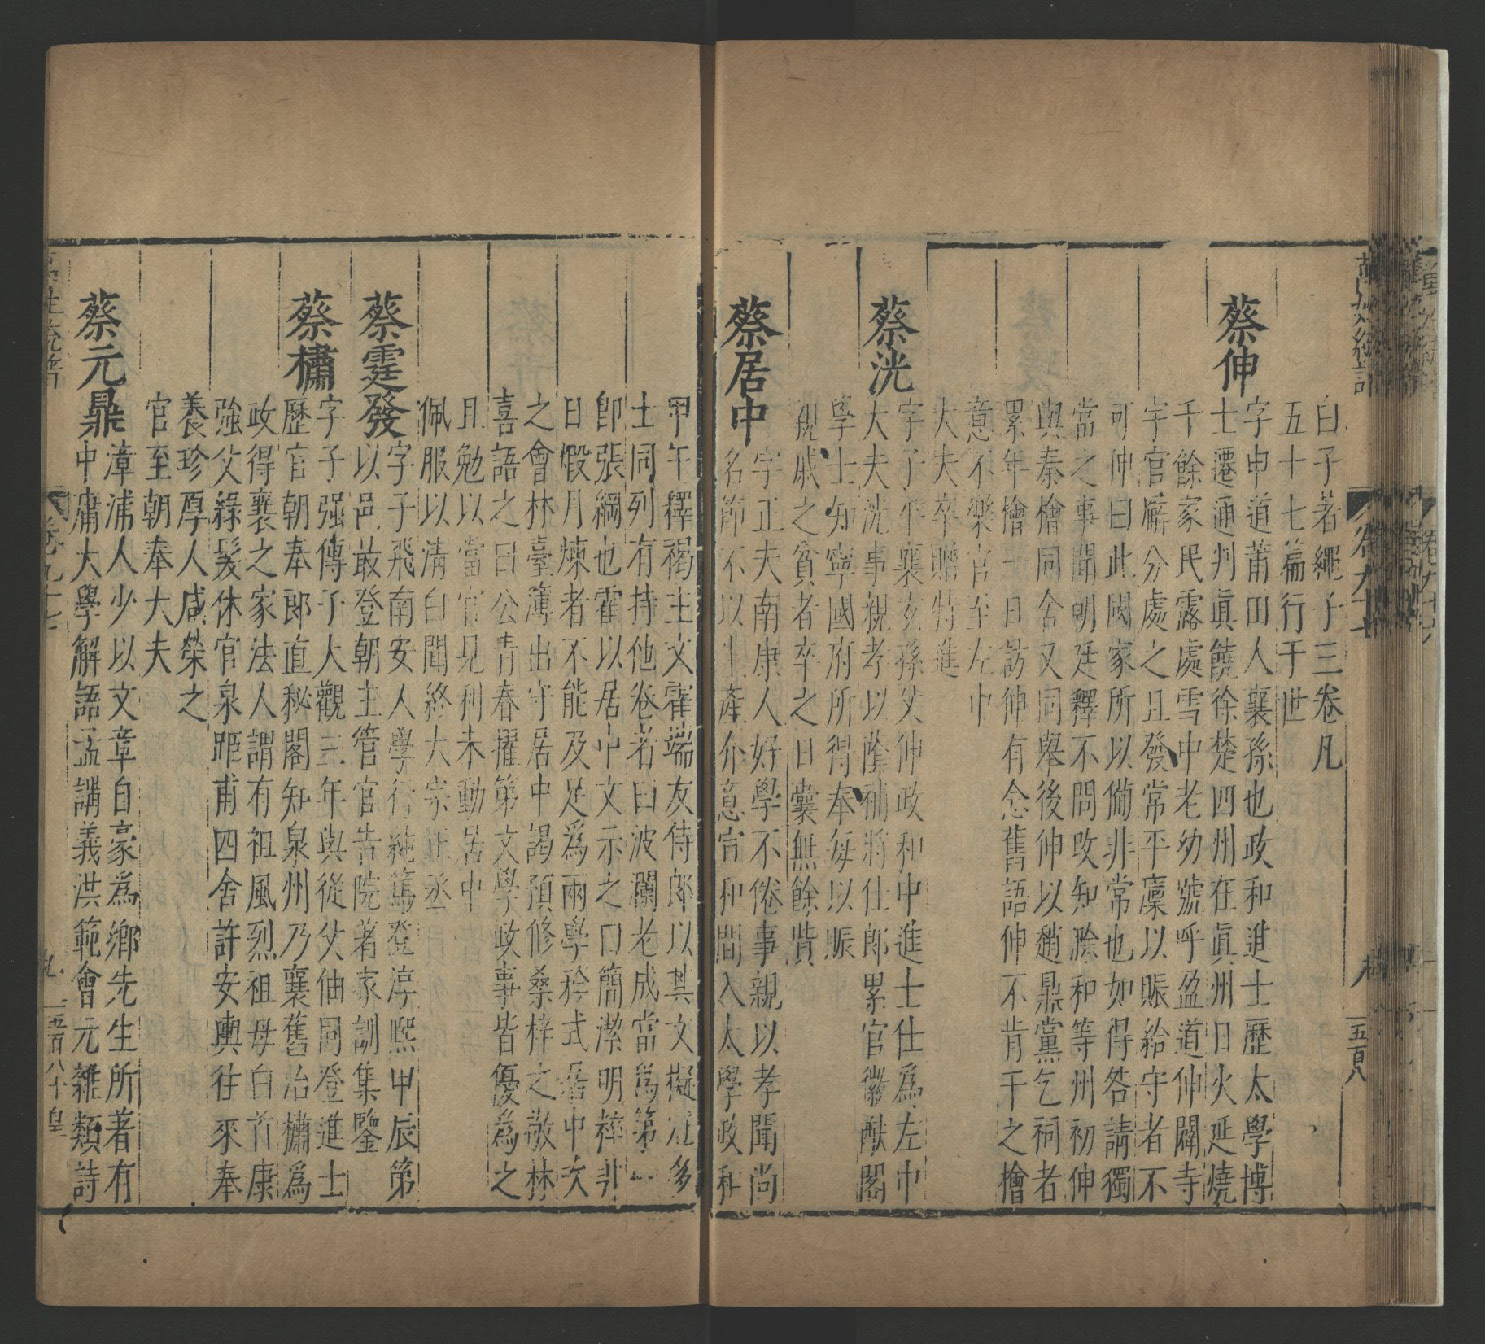 白子著繩子三卷凡
五十七篇行于世
蔡伸
字申道莆田人襄孫也政和進士歷太學博
士遷通判眞饒徐楚四州在眞州日火延燒
千餘家民露處雪中老幼號呼盈道伸闢寺
宇官廨分處之且發常平廩以賑給守者不
可伸曰此國家所以備非常也如得咎請獨
當之事聞朝廷釋不問改知滁和等州初伸
與秦檜同舍又同舉後伸以趙鼎黨乞祠者
累年檜一日訪伸有念舊語伸不肯干之檜
意不樂官至左中
大夫卒贈特進
蔡洸
字子平襄玄孫父伸政和中進士仕爲左中
大夫洸事親孝以蔭補將仕郎累官徽猷閣
學士知寧國府所得奉每以賑
親戚之貧者卒之日囊無餘貲
蔡居中
字正夫南康人好學不倦事親以孝聞尚
名節不以生產介意宣和間入太學政和
甲午釋褐主文霍端友侍郎以其文擬冠多
士同列有持他卷者曰波瀾老成當爲第一
卽張綱也霍以居中文示之曰簡潔明粹非
日煅月煉者不能及足爲兩學矜式居中次
之會林臺簿出守居中謁預修桑梓之敬林
喜語之曰公青春擢第文學政事皆優爲之
且勉以當官見利未動居中
佩服以清白聞終大宗正丞
蔡霆發
字子飛南安人學行純篤登淳熙甲辰第
以邑最登朝主管官告院著家訓集鑒
蔡橚
字子强傳子大觀三年與從父伷同登進士
歷官朝奉郎直秘閣知泉州乃襄舊治橚爲
政得襄之家法人謂有祖風烈祖母白首康
強父祿髮休官泉距莆四舍許安輿往來奉
養珍厚人咸榮之
官至朝奉大夫
蔡元鼎
漳浦人少以文章自豪爲鄉先生所著有
中庸大學解語孟講義洪範會元雜類詩
卷九十七